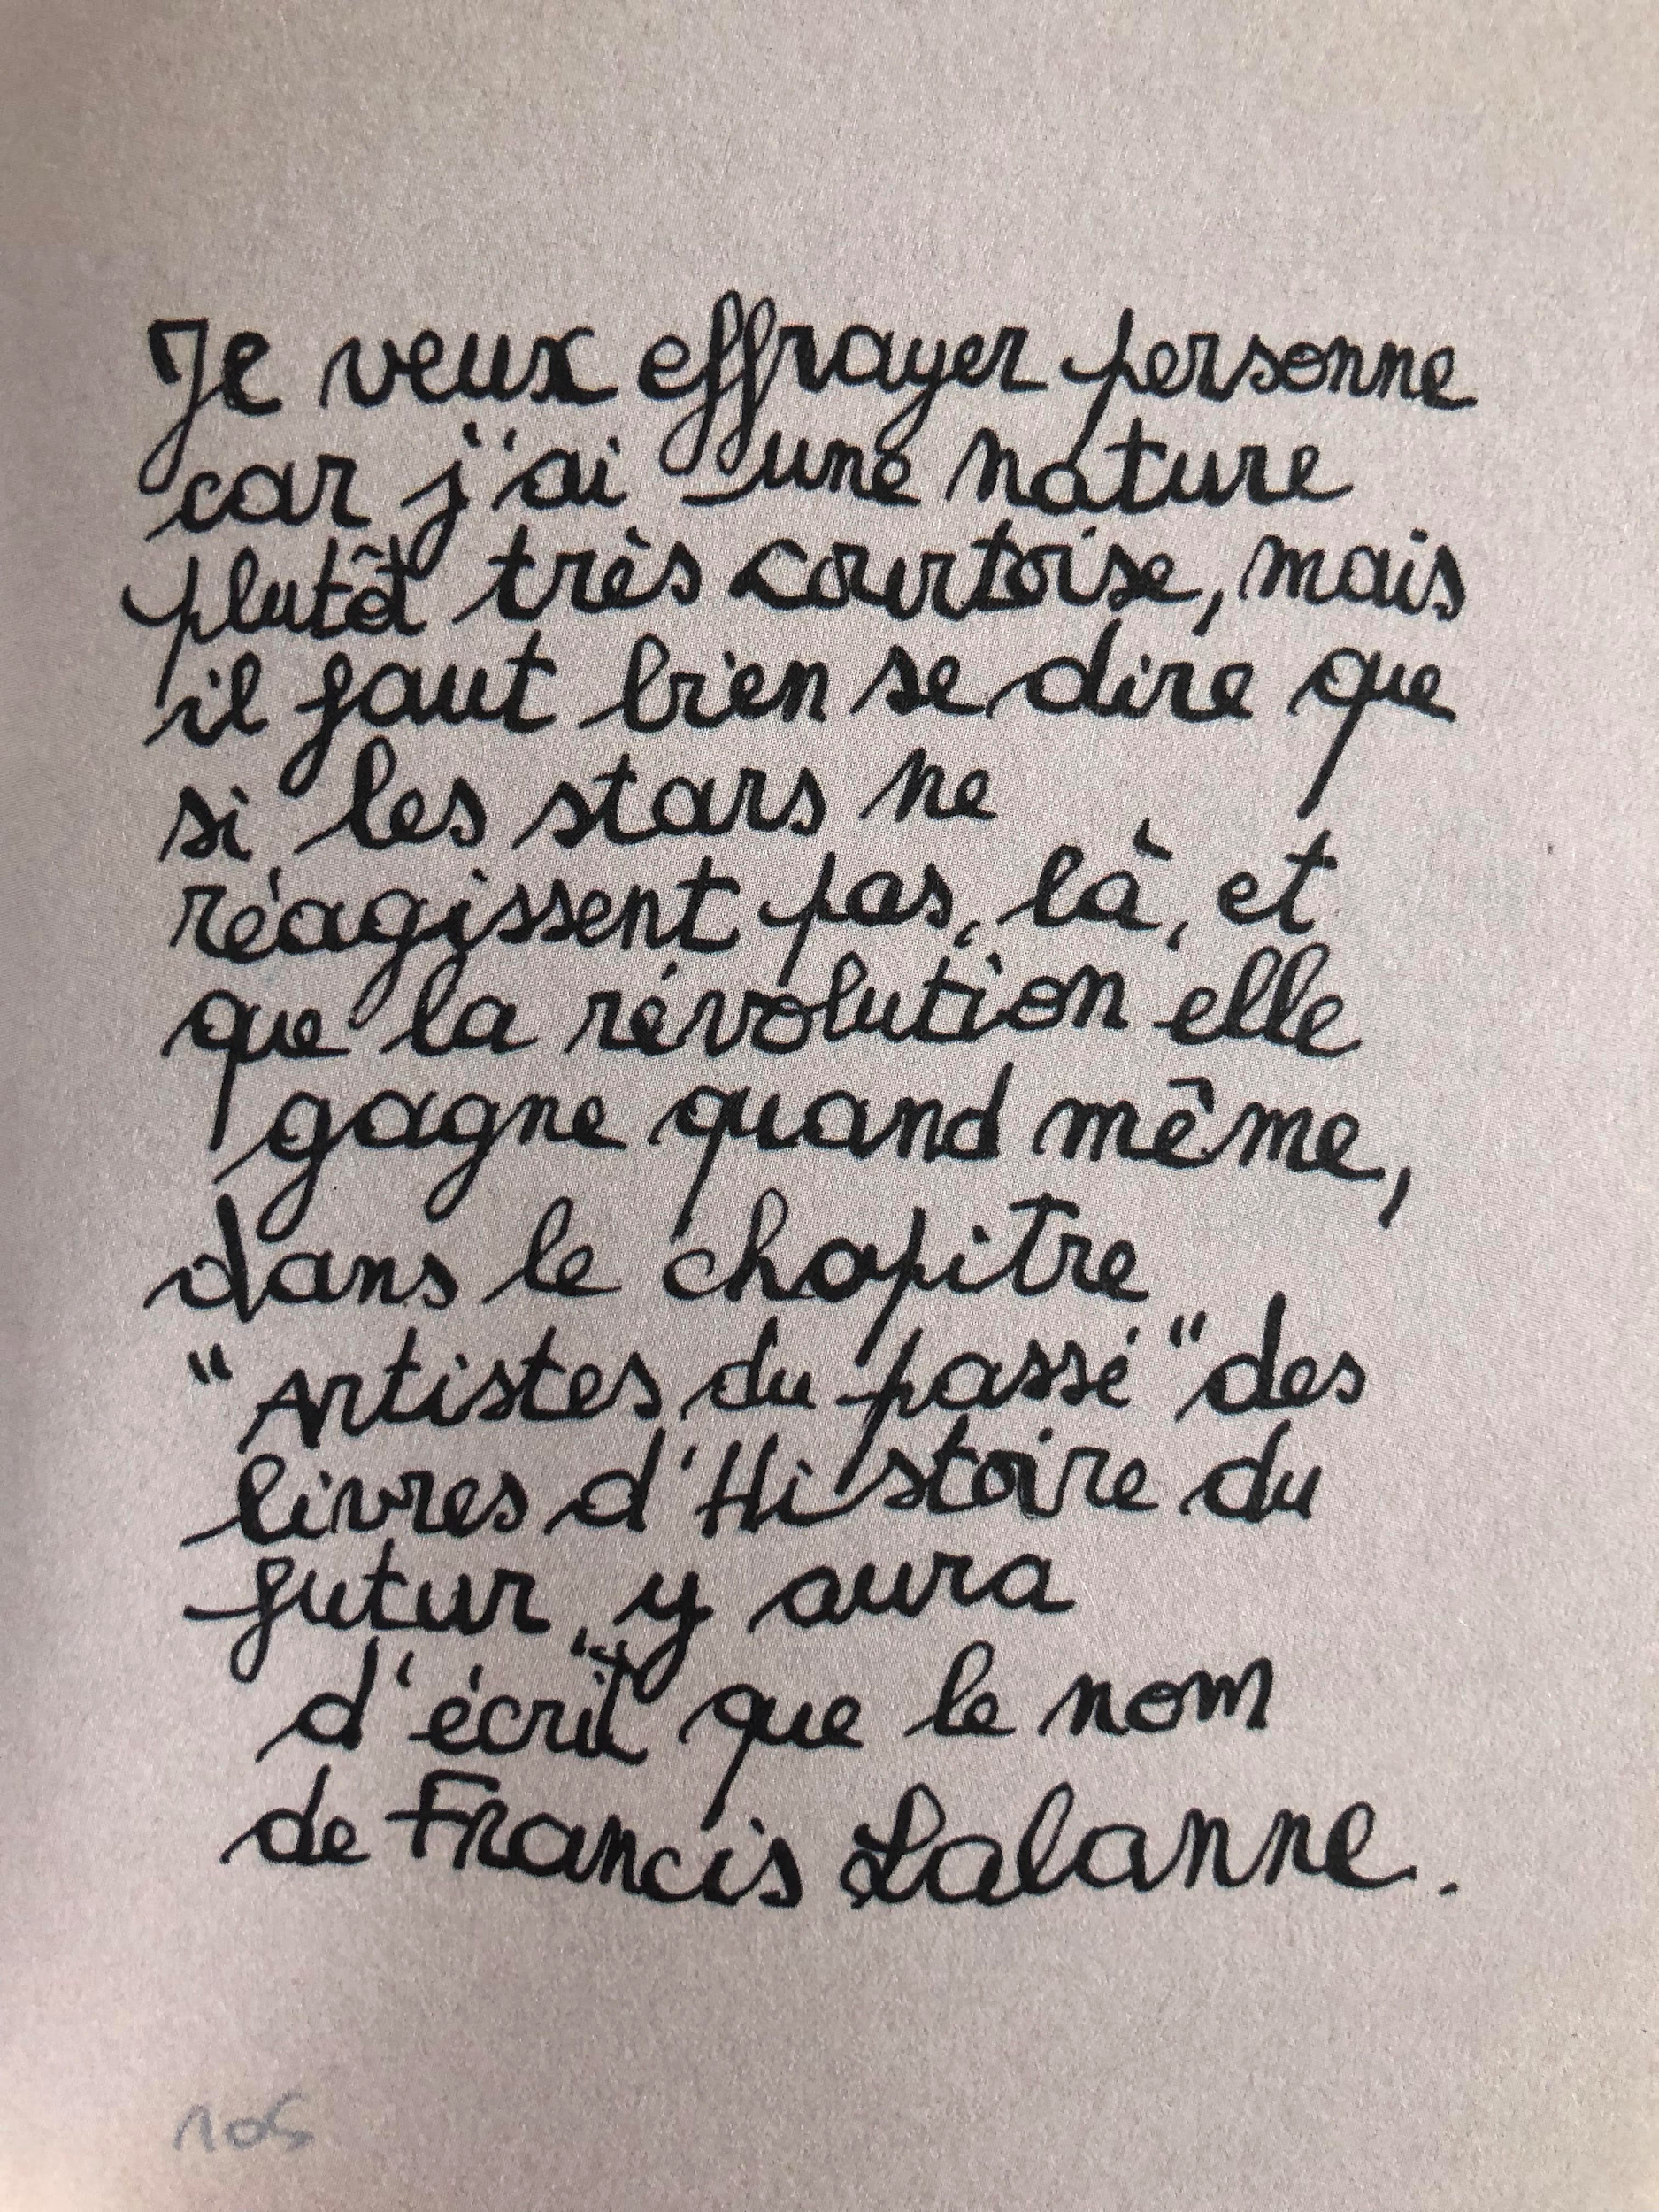 Je veux effrayer personne
car j'ai une nature
plutôt très courtoise, mais
il faut bien se dire que
si les stars ne
réagissent pas, là, et
que la révolution elle
gagne quand même,
dans le chapitre
"Artistes du passé" des
livres d'Histoire du
futur, y aura
d'écrit que le nom
de Francis Lalanne.
105